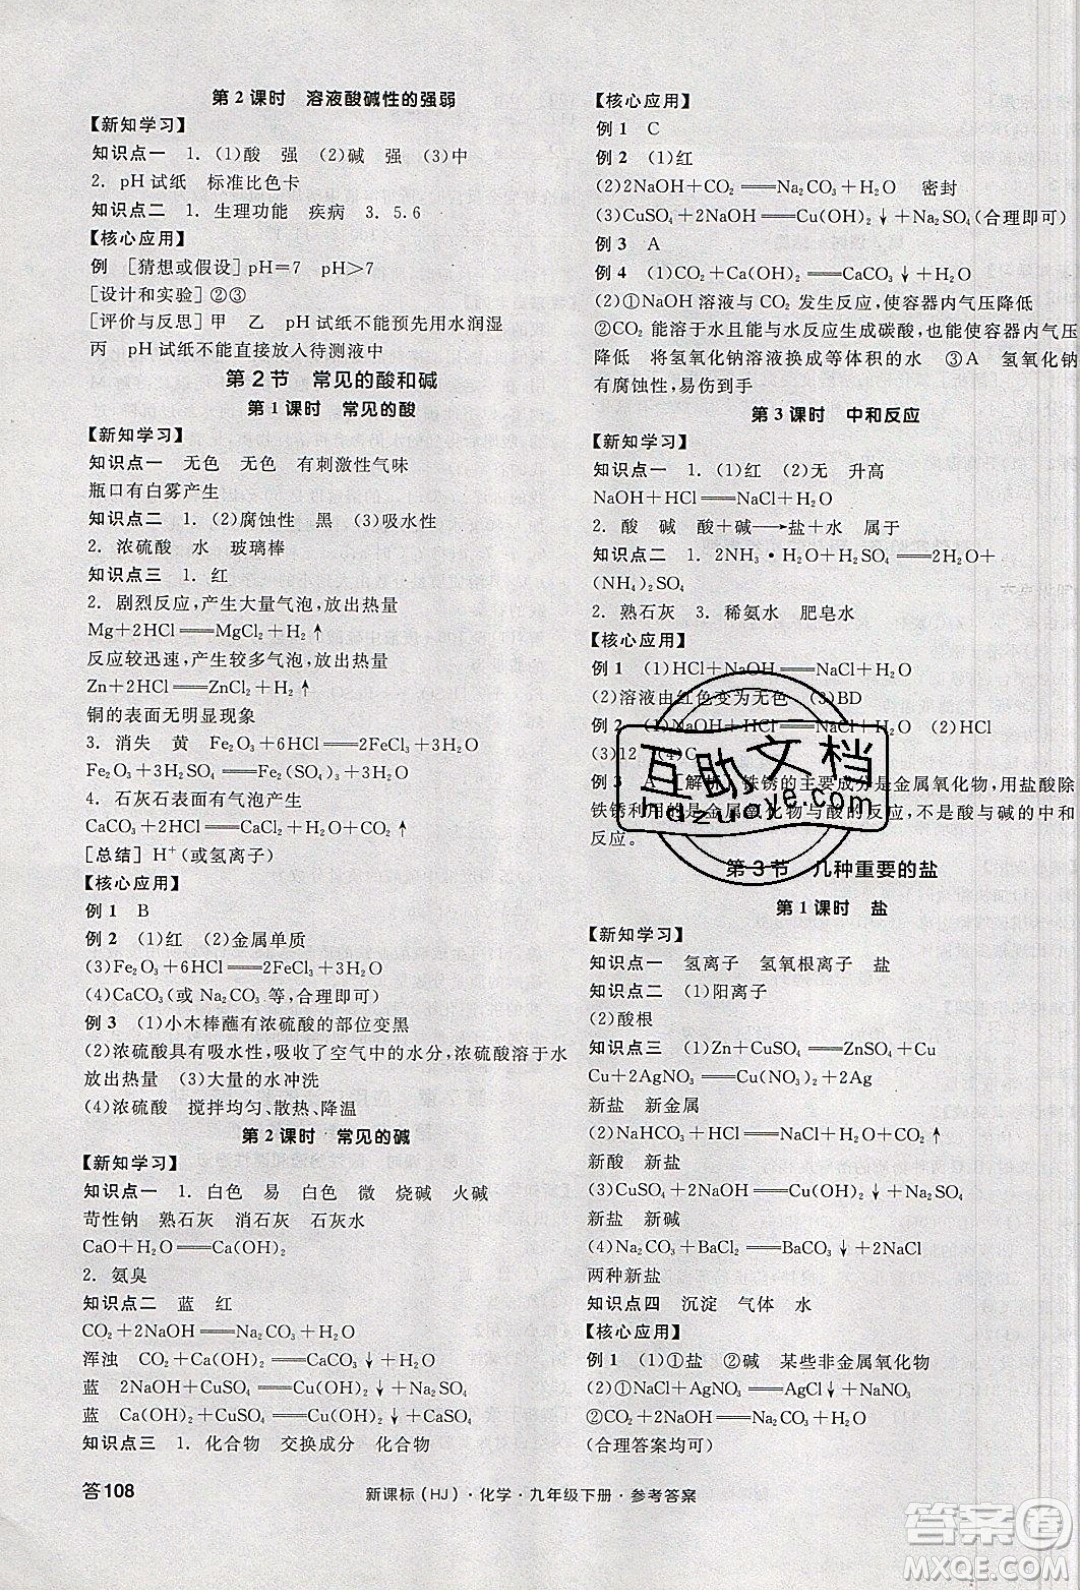 第2课时　溶液酸碱性的强弱
【新知学习】
知识点一　1. (1)酸　强　(2)碱　强　(3)中
2. pH试纸　标准比色卡
知识点二　1. 生理功能　疾病　3. 5.6
【核心应用】
例　[猜想或假设]pH=7　pH>7
[设计和实验]②③
[评价与反思]甲　乙　pH试纸不能预先用水润湿
丙　pH试纸不能直接放入待测液中
第2节　常见的酸和碱
第1课时　常见的酸
【新知学习】
知识点一　无色　无色　有刺激性气味
瓶口有白雾产生
知识点二　1. (2)腐蚀性　黑　(3)吸水性
2. 浓硫酸　水　玻璃棒
知识点三　1. 红
2. 剧烈反应,产生大量气泡,放出热量
Mg+2HCl══MgCl₂+H₂↑
反应较迅速,产生较多气泡,放出热量
Zn+2HCl══ZnCl₂+H₂↑
铜的表面无明显现象
3. 消失　黄　Fe₂O₃+6HCl══2FeCl₃+3H₂O
Fe₂O₃+3H₂SO₄══Fe₂(SO₄)₃+3H₂O
4. 石灰石表面有气泡产生
CaCO₃+2HCl══CaCl₂+H₂O+CO₂↑
[总结]H⁺(或氢离子)
【核心应用】
例1　B
例2　(1)红　(2)金属单质
(3)Fe₂O₃+6HCl══2FeCl₃+3H₂O
(4)CaCO₃(或Na₂CO₃等,合理即可)
例3　(1)小木棒蘸有浓硫酸的部位变黑
(2)浓硫酸具有吸水性,吸收了空气中的水分,浓硫酸溶于水
放出热量　(3)大量的水冲洗
(4)浓硫酸　搅拌均匀、散热、降温
第2课时　常见的碱
【新知学习】
知识点一　1. 白色　易　白色　微　烧碱　火碱
苛性钠　熟石灰　消石灰　石灰水
CaO+H₂O══Ca(OH)₂
2. 氨臭
知识点二　蓝　红
CO₂+2NaOH══Na₂CO₃+H₂O
浑浊　CO₂+Ca(OH)₂══CaCO₃↓+H₂O
蓝　2NaOH+CuSO₄══Cu(OH)₂↓+Na₂SO₄
蓝　Ca(OH)₂+CuSO₄══Cu(OH)₂↓+CaSO₄
知识点三　1. 化合物　交换成分　化合物
答108
【核心应用】
例1　C
例2　(1)红
(2)2NaOH+CO₂══Na₂CO₃+H₂O　密封
(3)CuSO₄+2NaOH══Cu(OH)₂↓+Na₂SO₄(合理即可)
例3　A
例4　(1)CO₂+Ca(OH)₂══CaCO₃↓+H₂O
(2)①NaOH溶液与CO₂发生反应,使容器内气压降低
②CO₂能溶于水且能与水反应生成碳酸,也能使容器内气压
降低　将氢氧化钠溶液换成等体积的水　③A　氢氧化钠
有腐蚀性,易伤到手
第3课时　中和反应
【新知学习】
知识点一　1. (1)红　(2)无　升高
NaOH+HCl══NaCl+H₂O
2. 酸　碱　酸+碱→盐+水　属于
知识点二　1. 2NH₃·H₂O+H₂SO₄══2H₂O+
(NH₄)₂SO₄
2. 熟石灰　3. 稀氨水　肥皂水
【核心应用】
例1　(1)HCl+NaOH══NaCl+H₂O
(2)溶液由红色变为无色　(3)BD
例2　(1)NaOH+HCl══NaCl+H₂O　(2)HCl
(3)12　(4)C
例3　A　[解析]铁锈的主要成分是金属氧化物,用盐酸除
铁锈利用的是金属氧化物与酸的反应,不是酸与碱的中和
反应。
第3节　几种重要的盐
第1课时　盐
【新知学习】
知识点一　氢离子　氢氧根离子　盐
知识点二　(1)阳离子
(2)酸根
知识点三　(1)Zn+CuSO₄══ZnSO₄+Cu
Cu+2AgNO₃══Cu(NO₃)₂+2Ag
新盐　新金属
(2)CaCO₃+2HCl══CaCl₂+H₂O+CO₂↑
新酸　新盐
(3)CuSO₄+2NaOH══Cu(OH)₂↓+Na₂SO₄
新盐　新碱
(4)Na₂CO₃+BaCl₂══BaCO₃↓+2NaCl
两种新盐
知识点四　沉淀　气体　水
【核心应用】
例1　(1)①盐　②碱　某些非金属氧化物
(2)①NaCl+AgNO₃══AgCl↓+NaNO₃
②CO₂+2NaOH══Na₂CO₃+H₂O
(合理答案均可)
新课标(HJ)·化学·九年级下册·参考答案
互助文档
huzuoye.com
答案圈
MXQE.COM